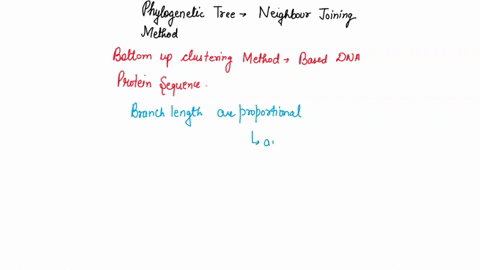 Phylogenetic Tree → Neighbour Joining
Method
Bottom up clustering Method → Based DNA
Protein Sequence.
Branch length are proportional
↳ a.